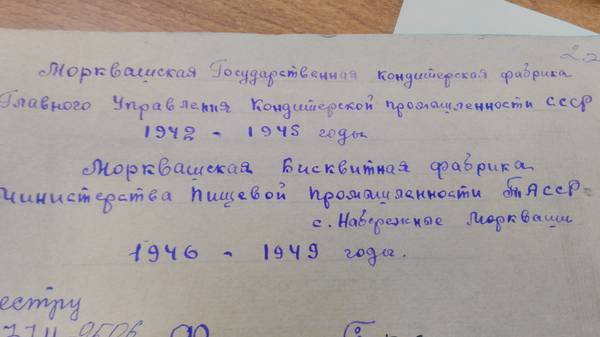 Морквашская Государственная кондитерская фабрика
Главного Управления Кондитерской промышленности СССР
1942 - 1945 годы
Морквашская Бисквитная фабрика
Министерства Пищевой промышленности ТАССР
с. Набережные Моркваши
1946 - 1949 годы.
естру